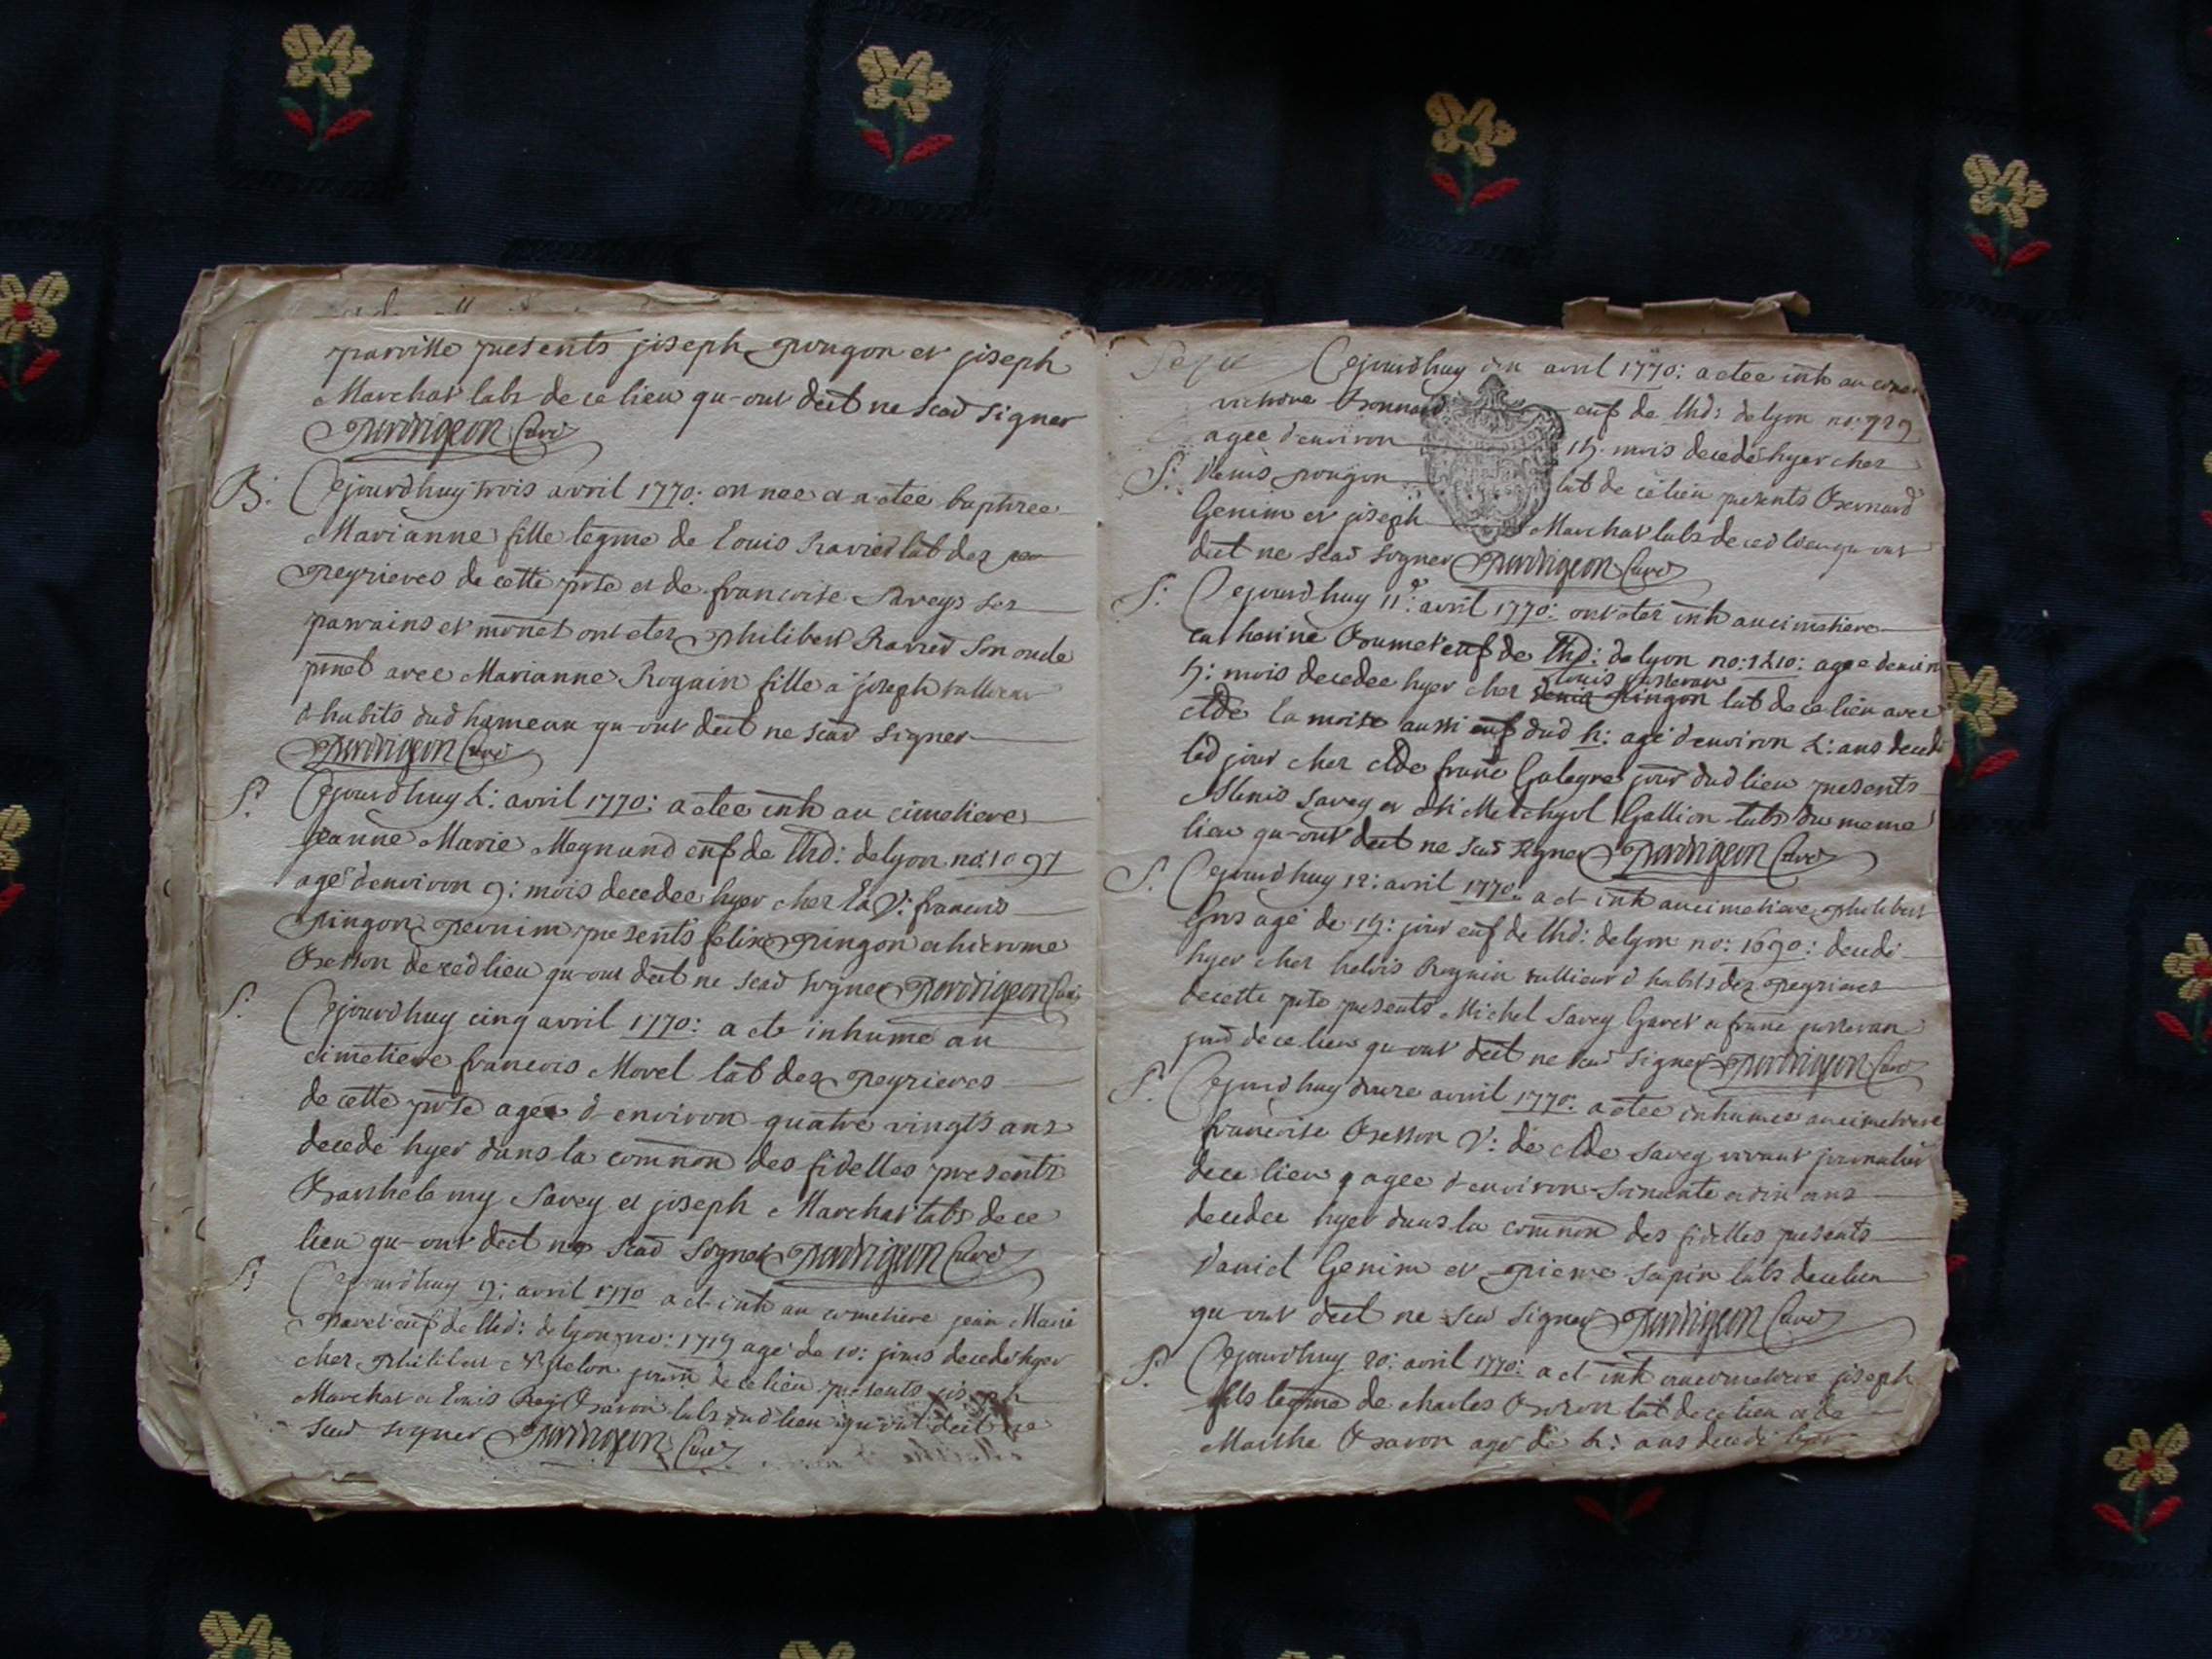 parroisse presents joseph pingon et joseph
Marchat labs de ce lieu qu-ont deet ne scad signer
Perdrigeon Curé
B: Cejourdhuy trois avril 1770: en nee et a etée baptizee
Marianne fille legme de Louis Ravier lab des
peyrieres de cette prse et de francoise Savey ses
parrains et ont eter Philibert Ravier son oncle
avec Marianne Rogain fille a joseph tallieur
d habits dud hameau qu-ont deet ne scad signer
Perdrigeon Curé
S: Cejourdhuy 4: avril 1770: a etee inh au cimetiere
jeanne Marie Meynund enf de lhd: de lyon no: 1097
agé denviron 9: mois decedee hyer chez la V: francois
pingon pernim presents felix pingon et hierome
Besson de ced lieu qu-ont deet ne scad signer Perdrigeon Curé
S: Cejourdhuy cinq avril 1770: a ete inhumé au
cimetiere francois Morel lab des peyrieres
de cette prse agée d environ quatre vingts ans
decedé hyer dans la comnon des fidelles presents
Barthelemy Savey et joseph Marchat labs de ce
lieu qu-ont deet ne scad signer Perdrigeon Curé
S: Cejourdhuy 9: avril 1770 a et inh au cimetiere jean Marie
Pavet enf de lhd: de lyon no: 1719 agé de 10: jours decedé hyer
chez Philibert de ce lieu presents joseph
Marchat et louis Rey Baron labs dud lieu qu ont deet ne
scad signer Perdrigeon Curé
Cejourdhuy dix avril 1770: a etee inh au cime
victoire Bonnard enf de lhd: de lyon no: 929
agee d'environ 15: mois decedé hyer chez
S: Denis pingon lab de ce lieu presents Bernard
Genim et joseph Marchat labs de ced lieu qu ont
deet ne scad signer Perdrigeon Curé
S: Cejourdhuy 11: avril 1770: ont eter inh au cimetiere
catherine Brumet enf de lhd: de lyon no: 1210: agee denvirn
5: mois decedee hyer chez louis jusseran denis pingon lab de ce lieu avec
clde la moise aussi enf dud h: agé d'environ 4: ans decedé
led jour chez clde franc Galayre jour dud lieu presents
denis Savey et Melchyol Gallion labs du meme
lieu qu-ont deet ne scad signer Perdrigeon Curé
S: Cejourdhuy 12: avril 1770: a et inh au cimetiere Philibert
Gris agé de 15: jour enf de lhd: de lyon no: 1690: decedé
hyer chez Rogain tallieur d habits des peyrieres
de cette prse presents Michel Savey Garet et franc jusseran
jour de ce lieu qu ont deet ne scad signer Perdrigeon Curé
S: Cejourdhuy avril 1770: a etee inhumee au cimetiere
francoise Besson V: de clde Savey vivant journalier
de ce lieu agee d environ soixante et dix ans
decedee hyer dans la comnon des fidelles presents
Daniel Genim et pierre sapin labs de ce lieu
qu ont deet ne scad signer Perdrigeon Curé
S: Cejourdhuy 20: avril 1770: a et inh au cimetiere joseph
fils legme de charles Baron lab de ce lieu et de
Marthe Baron agé de 4: ans decedé hyer